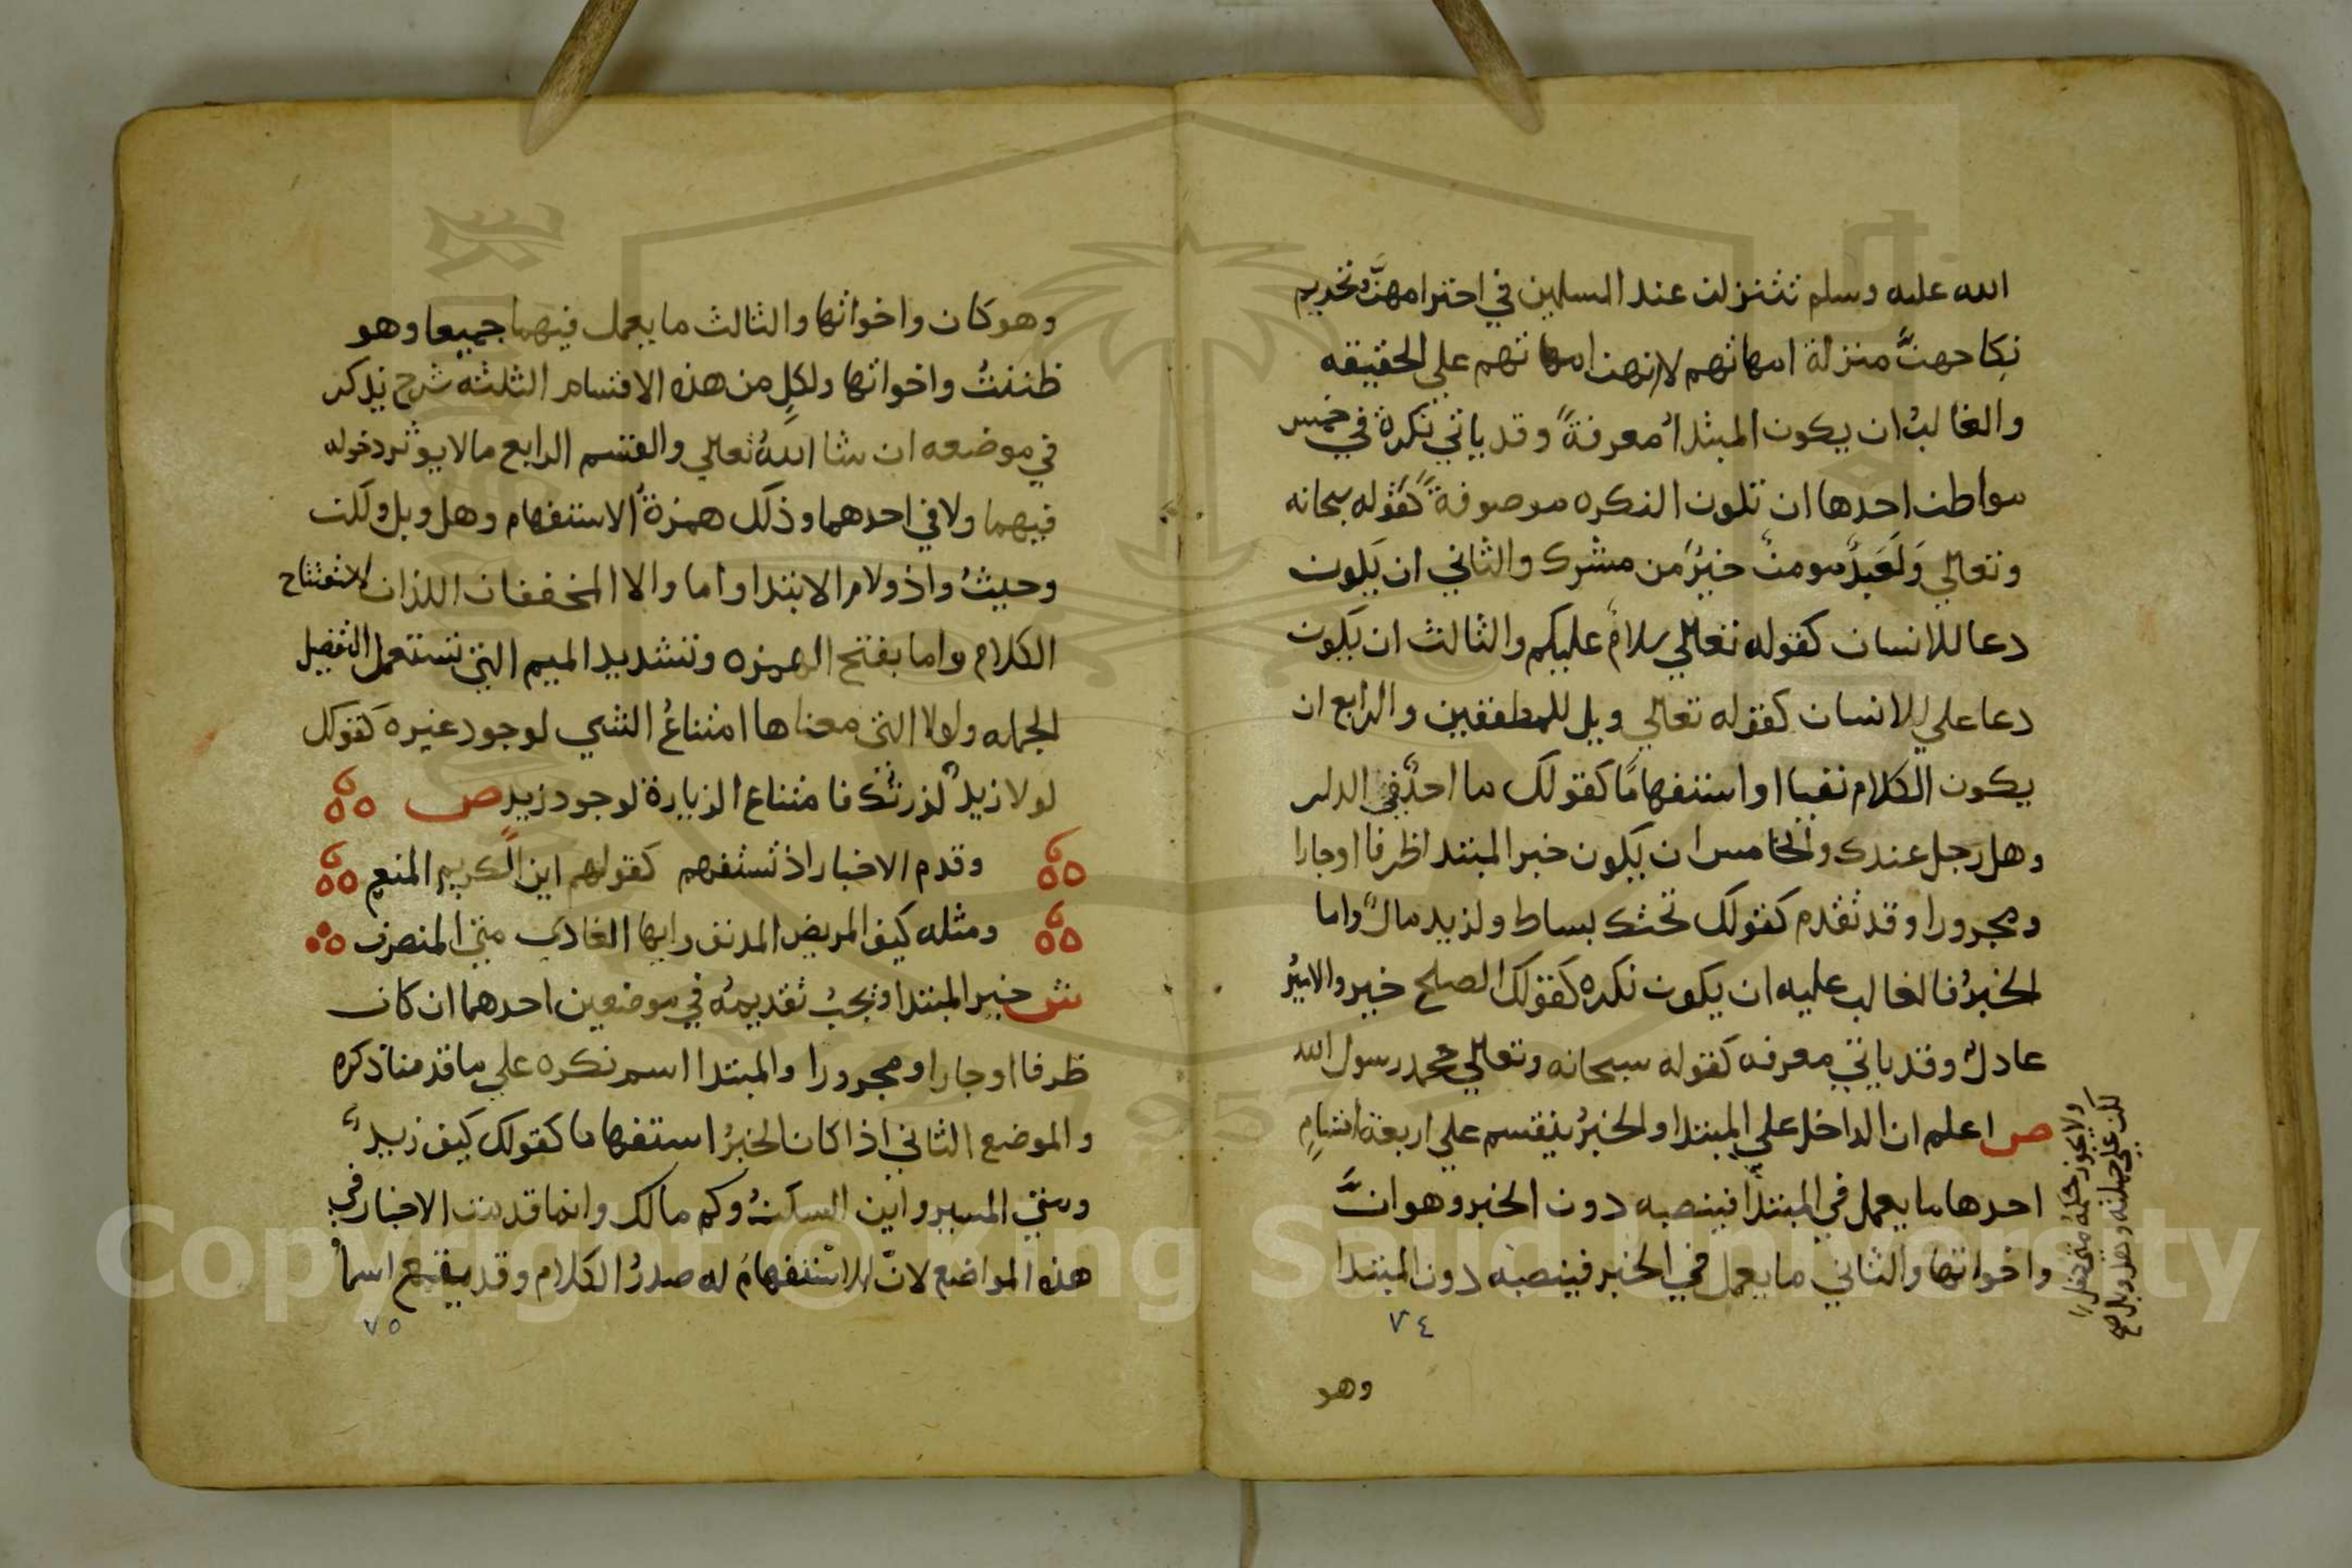 الله عليه وسلم تتنزلن عند المسلمين في احترامهنَّ وتحريم
نكاحهنَّ منزلة امهاتهم لانهن امهاتهم علي الحقيقه
والغالبُ ان يكون المبتدأ معرفةً وقد ياتي نكرة في خمس
مواطن احدها ان تكون النكره موصوفةً كقوله سبحانه
وتعالي وَلَعَبدٌ مومنٌ خيرٌ من مشرك والثاني ان يكون
دعا للانسان كقوله تعالي سلامٌ عليكم والثالث ان يكون
دعا علي للانسان كقوله تعالي ويل للمطففين والرابع ان
يكون الكلام نفيا او استفهامًا كقولك ما احدٌ في الدار
وهل رجل عندك والخامس ان يكون خبر المبتدا ظرفا او جارا
ومجرورا وقد تقدم كقولك تحتك بساط ولزيد مالٌ واما
الخبرُ فالغالب عليه ان يكون نكره كقولك الصلح خير والاميرُ
عادلٌ وقد ياتي معرفه كقوله سبحانه وتعالي محمد رسول الله
ص اعلم ان الداخل علي المبتدا والخبرُ ينقسم علي اربعة اقسامٍ
احدها ما يعمل في المبتدأ فينصبه دون الخبر وهو انَّ
واخواتها والثاني ما يعمل في الخبر فينصبه دون المبتدا
ولا يجوز حكمه متي دخل
لكن علي جملته وهل وبل صح
٧٤
وهو
وهو كان واخواتها والثالث ما يعمل فيهما جميعا وهو
ظننتُ واخواتها ولكلٍ من هذه الاقسام الثلثه شرح يذكر
في موضعه ان شا اللهُ تعالي والقسم الرابع مالا يوثر دخوله
فيهما ولا في احدهما وذلك همزةُ الاستفهام وهل وبل ولكن
وحيثُ واذ ولام الابتدا واما والا المخففان اللذان لاستفتاح
الكلام واما بفتح الهمزه وتشديد الميم التي تستعمل لتفصيل
الجمله ولولا التي معناها امتناعُ الشي لوجود غيره كقولك
لولا زيدٌ لزرتك فامتناع الزيارة لوجود زيدٍ ص
وقدم الاخبار اذ تستفهم كقولهم اين الكريم المنعم
ومثله كيف المريض المدنف وايها الغادي متي المنصرف
ش خبر المبتدا ويجبُ تقديمهُ في موضعين احدهما ان كان
ظرفا او جارا ومجرورا والمبتدا اسم نكره علي ما قدمنا ذكره
والموضع الثاني اذا كان الخبرُ استفهاما كقولك كيف زيدٌ
ومتي المسير واين السكنُ وكم مالك وانما قدمت الاخبار في
هذه المواضع لانّ الاستفهامَ له صدرُ الكلام وقد يقع اسماُ
٧٥
Copyright © King Saud University
1957